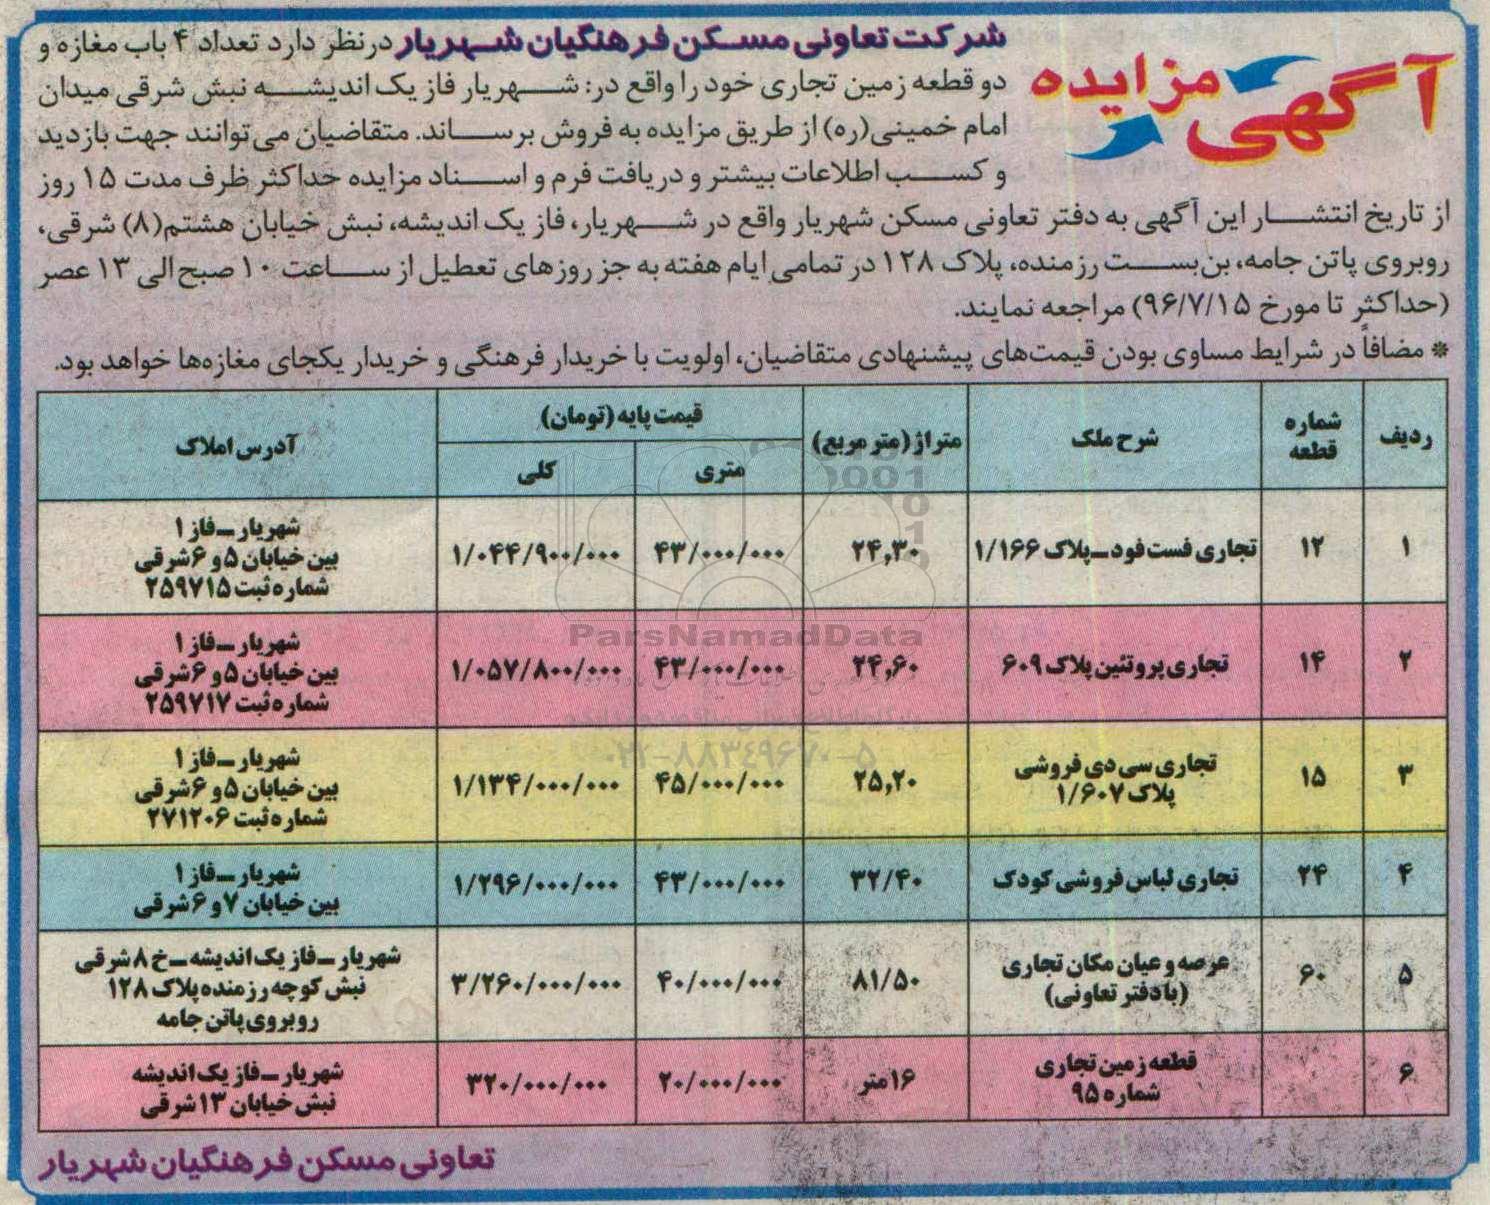 آگهی مزایده
شرکت تعاونی مسکن فرهنگیان شهریار درنظر دارد تعداد ۴ باب مغازه و
دو قطعه زمین تجاری خود را واقع در: شهریار فاز یک اندیشه نبش شرقی میدان
امام خمینی(ره) از طریق مزایده به فروش برساند. متقاضیان می‌توانند جهت بازدید
و کسب اطلاعات بیشتر و دریافت فرم و اسناد مزایده حداکثر ظرف مدت ۱۵ روز
از تاریخ انتشار این آگهی به دفتر تعاونی مسکن شهریار واقع در شهریار، فاز یک اندیشه، نبش خیابان هشتم(۸) شرقی،
روبروی پاتن جامه، بن‌بست رزمنده، پلاک ۱۲۸ در تمامی ایام هفته به جز روزهای تعطیل از ساعت ۱۰ صبح الی ۱۳ عصر
(حداکثر تا مورخ ۹۶/۷/۱۵) مراجعه نمایند.
* مضافاً در شرایط مساوی بودن قیمت‌های پیشنهادی متقاضیان، اولویت با خریدار فرهنگی و خریدار یکجای مغازه‌ها خواهد بود.
ردیف شماره قطعه شرح ملک متراژ (متر مربع) قیمت پایه (تومان) آدرس املاک
متری کلی
۱ ۱۲ تجاری فست فود ـ پلاک ۱/۱۶۶ ۲۴,۳۰ ۴۳/۰۰۰/۰۰۰ ۱/۰۴۴/۹۰۰/۰۰۰ شهریار ـ فاز ۱
بین خیابان ۵ و ۶ شرقی
شماره ثبت ۲۵۹۷۱۵
۲ ۱۴ تجاری پروتئین پلاک ۶۰۹ ۲۴,۶۰ ۴۳/۰۰۰/۰۰۰ ۱/۰۵۷/۸۰۰/۰۰۰ شهریار ـ فاز ۱
بین خیابان ۵ و ۶ شرقی
شماره ثبت ۲۵۹۷۱۷
۳ ۱۵ تجاری سی دی فروشی پلاک ۱/۶۰۷ ۲۵,۲۰ ۴۵/۰۰۰/۰۰۰ ۱/۱۳۴/۰۰۰/۰۰۰ شهریار ـ فاز ۱
بین خیابان ۵ و ۶ شرقی
شماره ثبت ۲۷۱۲۰۶
۴ ۲۴ تجاری لباس فروشی کودک ۳۲/۴۰ ۴۳/۰۰۰/۰۰۰ ۱/۲۹۶/۰۰۰/۰۰۰ شهریار ـ فاز ۱
بین خیابان ۷ و ۶ شرقی
۵ ۶۰ عرصه و عیان مکان تجاری (با دفتر تعاونی) ۸۱/۵۰ ۴۰/۰۰۰/۰۰۰ ۳/۲۶۰/۰۰۰/۰۰۰ شهریار ـ فاز یک اندیشه ـ خ ۸ شرقی
نبش کوچه رزمنده پلاک ۱۲۸
روبروی پاتن جامه
۶ قطعه زمین تجاری شماره ۹۵ ۱۶متر ۲۰/۰۰۰/۰۰۰ ۳۲۰/۰۰۰/۰۰۰ شهریار ـ فاز یک اندیشه
نبش خیابان ۱۳ شرقی
تعاونی مسکن فرهنگیان شهریار
ParsNamadData
۰۲۱-۸۸۳۴۹۶۷۰-۵